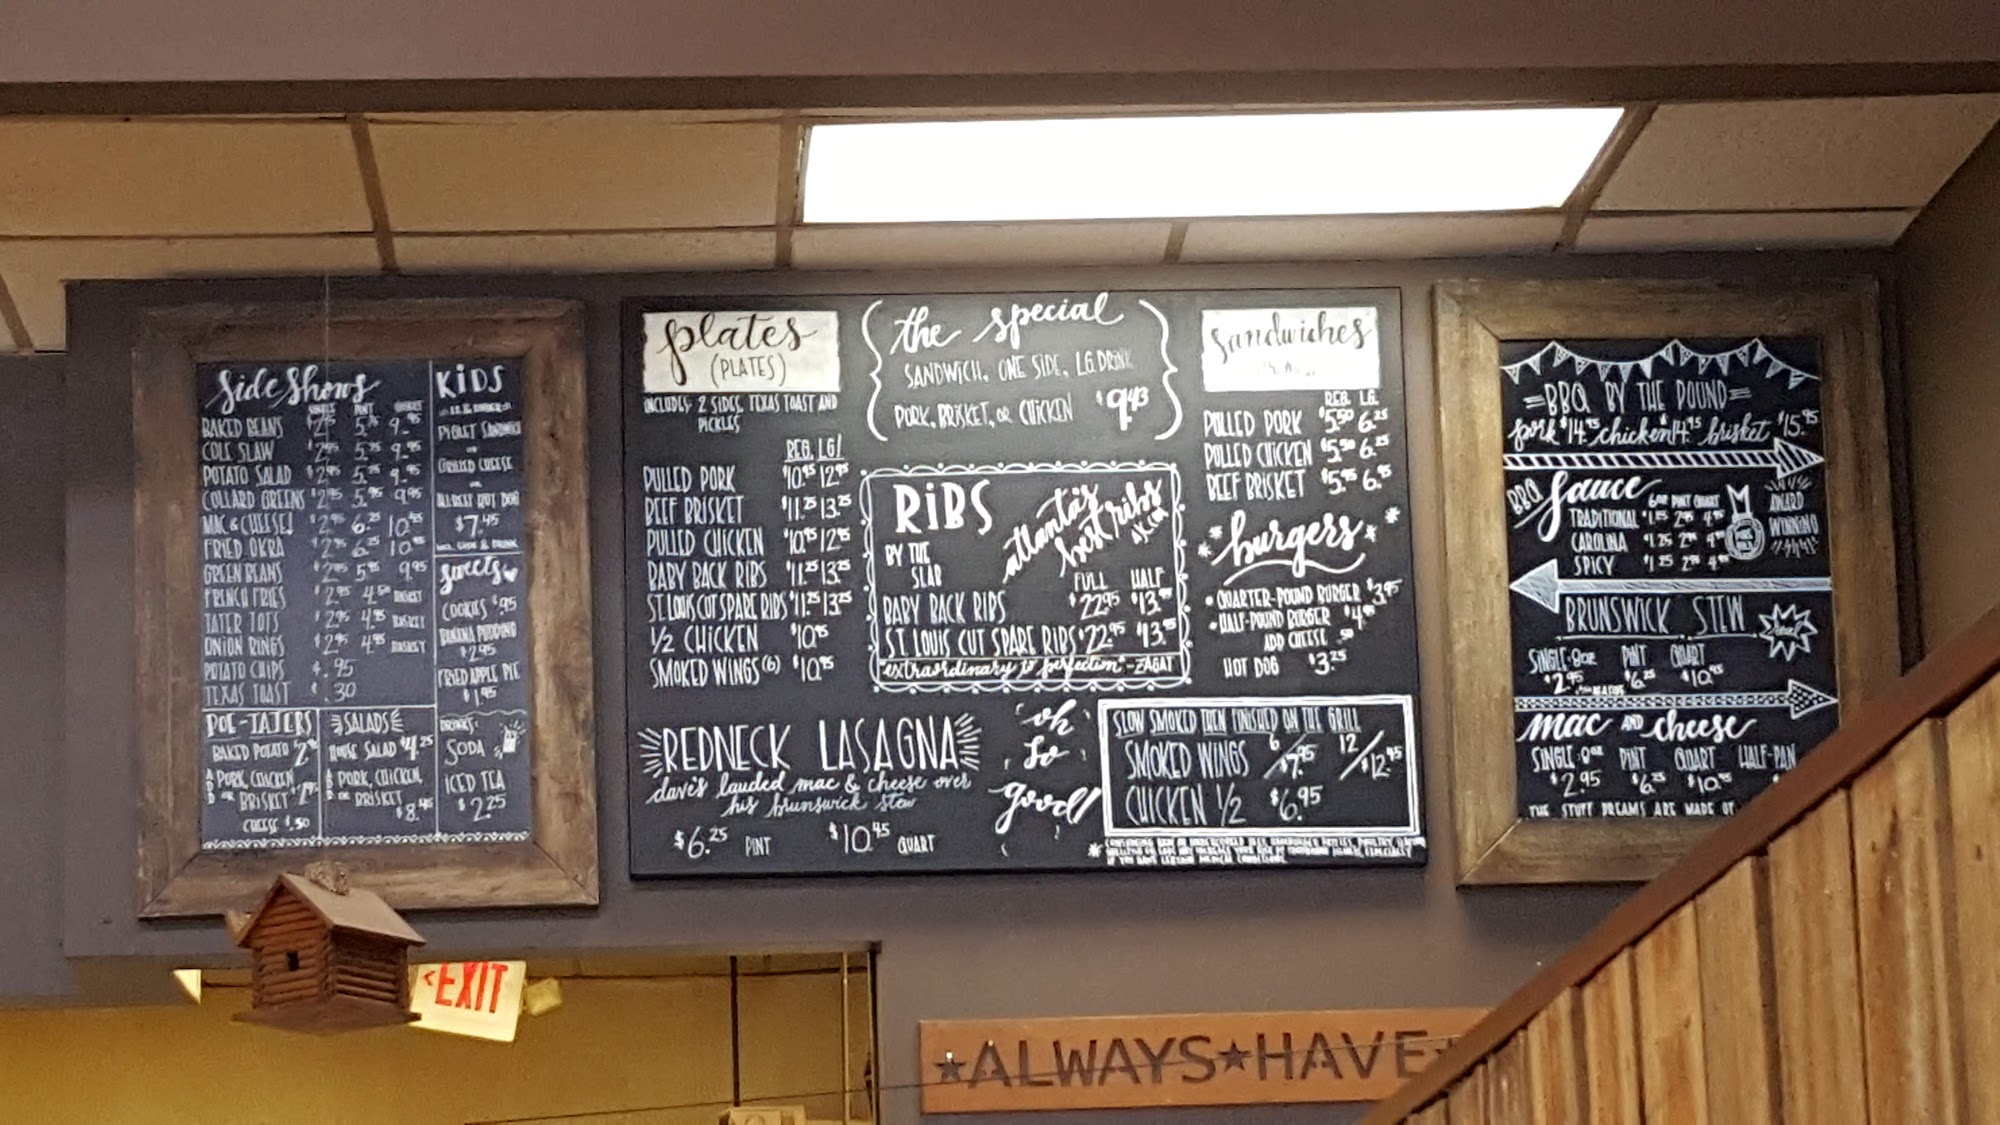 Side Shows
SINGLE PINT QUART
BAKED BEANS $2.95 5.75 9.95
COLE SLAW $2.95 5.75 9.95
POTATO SALAD $2.95 5.75 9.95
COLLARD GREENS $2.95 5.95 9.95
MAC & CHEESE! $2.95 6.25 10.95
FRIED OKRA $2.95 6.25 10.95
GREEN BEANS $2.95 5.95 9.95
FRENCH FRIES $2.95 4.50 BASKET
TATER TOTS $2.95 4.95 BASKET
ONION RINGS $2.95 4.95 BASKET
POTATO CHIPS $.95
TEXAS TOAST $.30
POE-TATERS
BAKED POTATO
ADD PORK, CHICKEN
OR BRISKET
CHEESE $.50
SALADS
HOUSE SALAD $4.25
ADD PORK, CHICKEN,
OR BRISKET
$8.45
KIDS
12 & UNDER
PIGLET SANDWICH
OR
GRILLED CHEESE
OR
ALL BEEF HOT DOG
$7.45
INCL. SIDE & DRINK
sweets
COOKIES $.95
BANANA PUDDING
$2.95
FRIED APPLE PIE
$1.95
DRINKS:
SODA
ICED TEA
$2.25
plates
(PLATES)
INCLUDES: 2 SIDES, TEXAS TOAST AND
PICKLES
REG. LG/
PULLED PORK $10.95 12.95
BEEF BRISKET $11.25 13.25
PULLED CHICKEN $10.95 12.95
BABY BACK RIBS $11.25 13.25
ST. LOUIS CUT SPARE RIBS $11.25 13.25
1/2 CHICKEN $10.95
SMOKED WINGS (6) $10.95
the special
SANDWICH, ONE SIDE, LG. DRINK
PORK, BRISKET, OR CHICKEN $9.43
RIBS
BY THE
SLAB
atlanta's
best ribs
AJC.COM
FULL HALF
BABY BACK RIBS $22.95 $13.95
ST. LOUIS CUT SPARE RIBS $22.95 $13.95
"extraordinary to perfection" - ZAGAT
REDNECK LASAGNA
dave's lauded mac & cheese over
his brunswick stew
$6.25 PINT $10.45 QUART
oh
so
good!
sandwiches
REG. LG.
PULLED PORK $5.50 6.25
PULLED CHICKEN $5.50 6.25
BEEF BRISKET $5.95 6.95
burgers
• QUARTER-POUND BURGER $3.95
• HALF-POUND BURGER $4.95
ADD CHEESE .50
HOT DOG $3.25
SLOW SMOKED THEN FINISHED ON THE GRILL
SMOKED WINGS 6/$7.95 12/$12.95
CHICKEN 1/2 $6.95
BBQ BY THE POUND
pork $14.95 chicken $14.95 brisket $15.95
BBQ Sauce
6oz PINT QUART
TRADITIONAL
CAROLINA
SPICY
AWARD
WINNING
BRUNSWICK STEW
SINGLE-8oz PINT QUART
$2.95 $6.25 $10.95
mac AND cheese
SINGLE-8oz PINT QUART HALF-PAN
$2.95 $6.25 $10.95
THE STUFF DREAMS ARE MADE OF
<EXIT
★ALWAYS★HAVE★